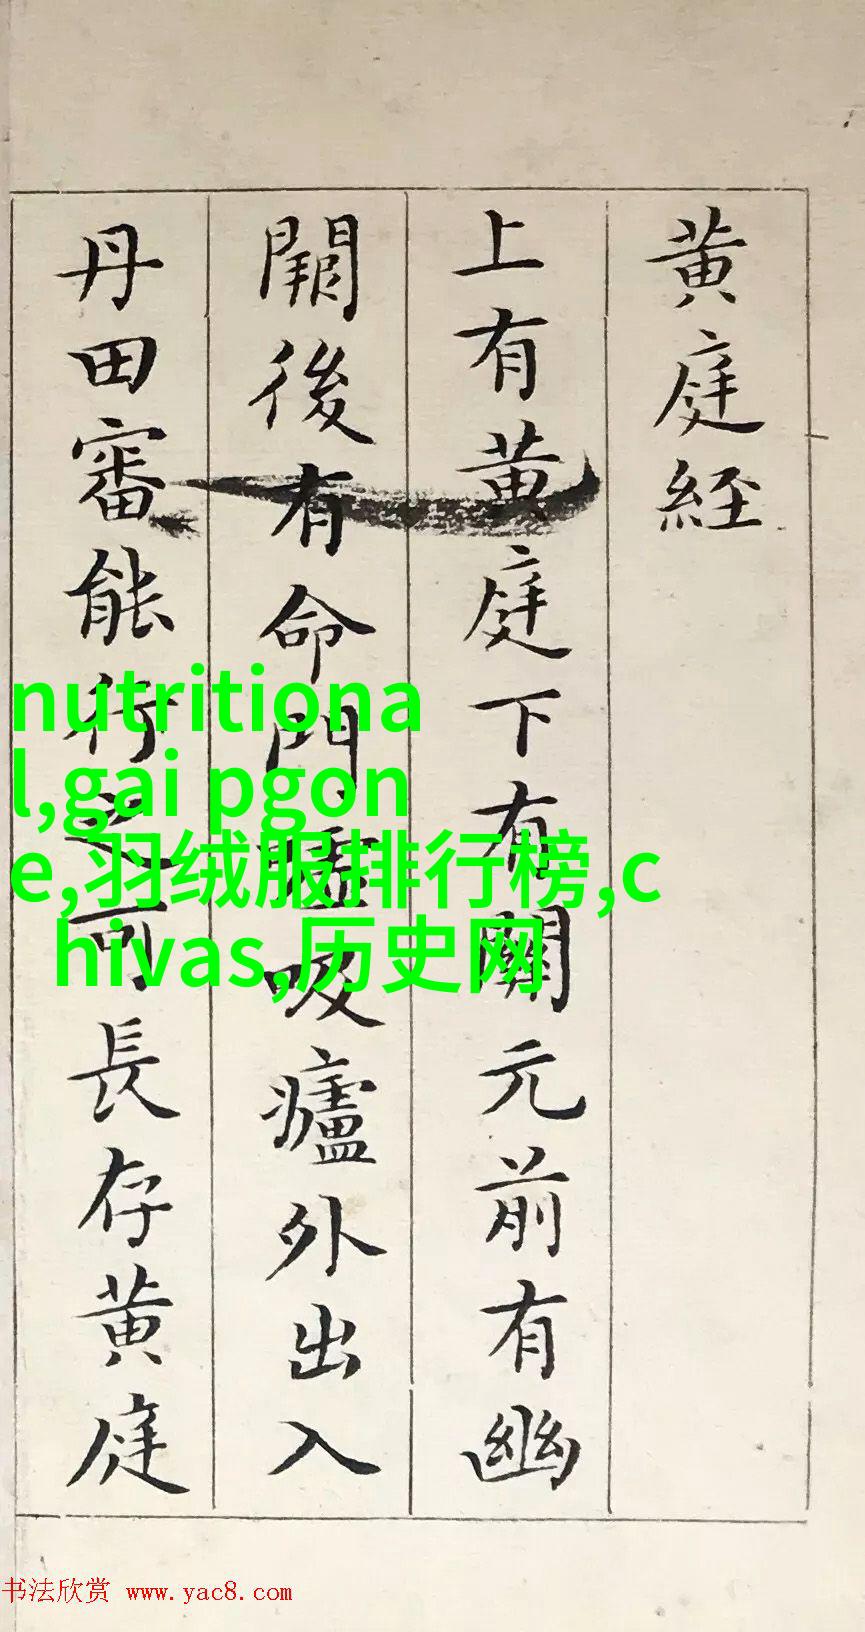 黄庭經
上有黄庭下有關元前有幽
闕後有命門噓吸廬外出入
丹田審能行之可長存黄庭
nutritiona
l,gai pgon
e,羽绒服排行榜,c
hivas,历史网
书法欣赏 www.yac8.com